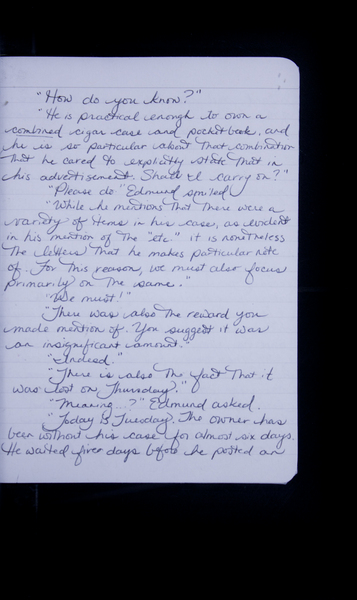 "How do you know?"
"He is practical enough to own a
combined cigar case and pocketbook, and
he is so particular about that combination
that he cared to explicitly state that in
his advertisement. Shall I carry on?"
"Please do" Edmund smiled
"While he mentions that there were a
variety of items in his case, as evident
in his mention of the "etc." it is nonetheless
the letters that he makes particular note
of. For this reason, we must also focus
primarily on the same."
"We must!"
"There was also the reward you
made mention of. You suggest it was
an insignificant amount."
"Indeed."
"There is also the fact that it
was lost on Thursday."
"Meaning...?" Edmund asked.
"Today is Tuesday. The owner has
been without his case for almost six days.
He waited five days before he posted an